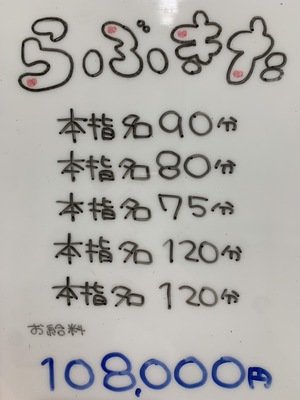 らぶまだ
本指名90分
本指名80分
本指名75分
本指名120分
本指名120分
お給料
108,000円